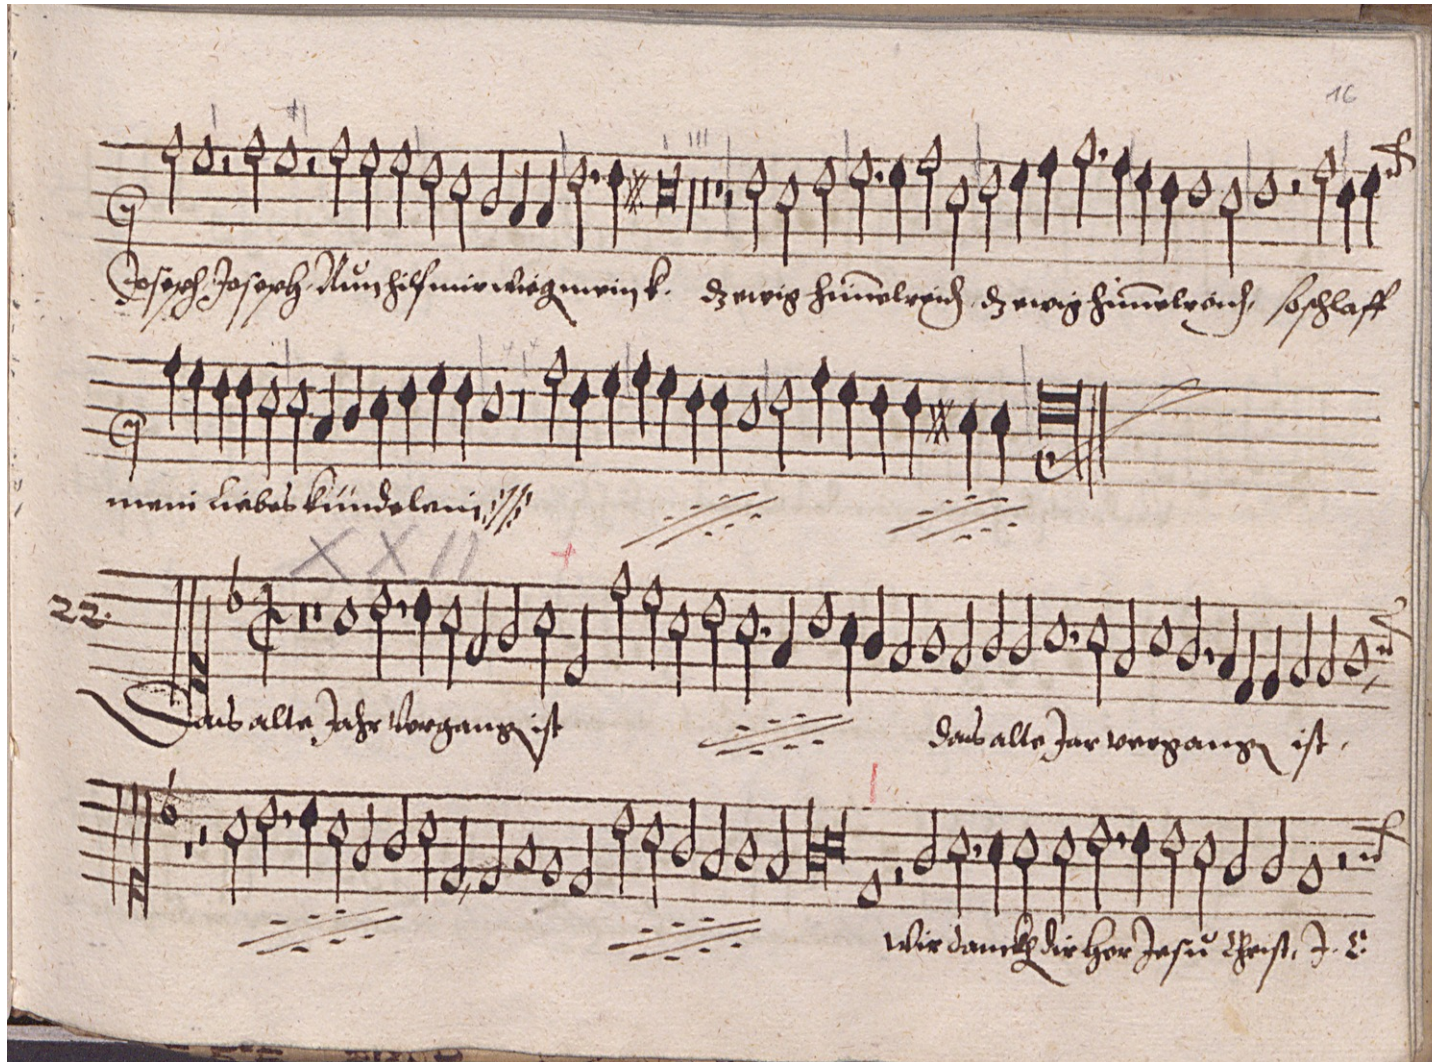 16
Joseph Joseph Nun hilf mir wieg mein k. dz ewig himelreich dz ewig himelreich, so schlaff
mein liebes kindelein
XXII
22.
Das alte Jahr vergang ist das alte Jar vergang ist,
Wir danckh dir Her Jesu Christ, J. C.